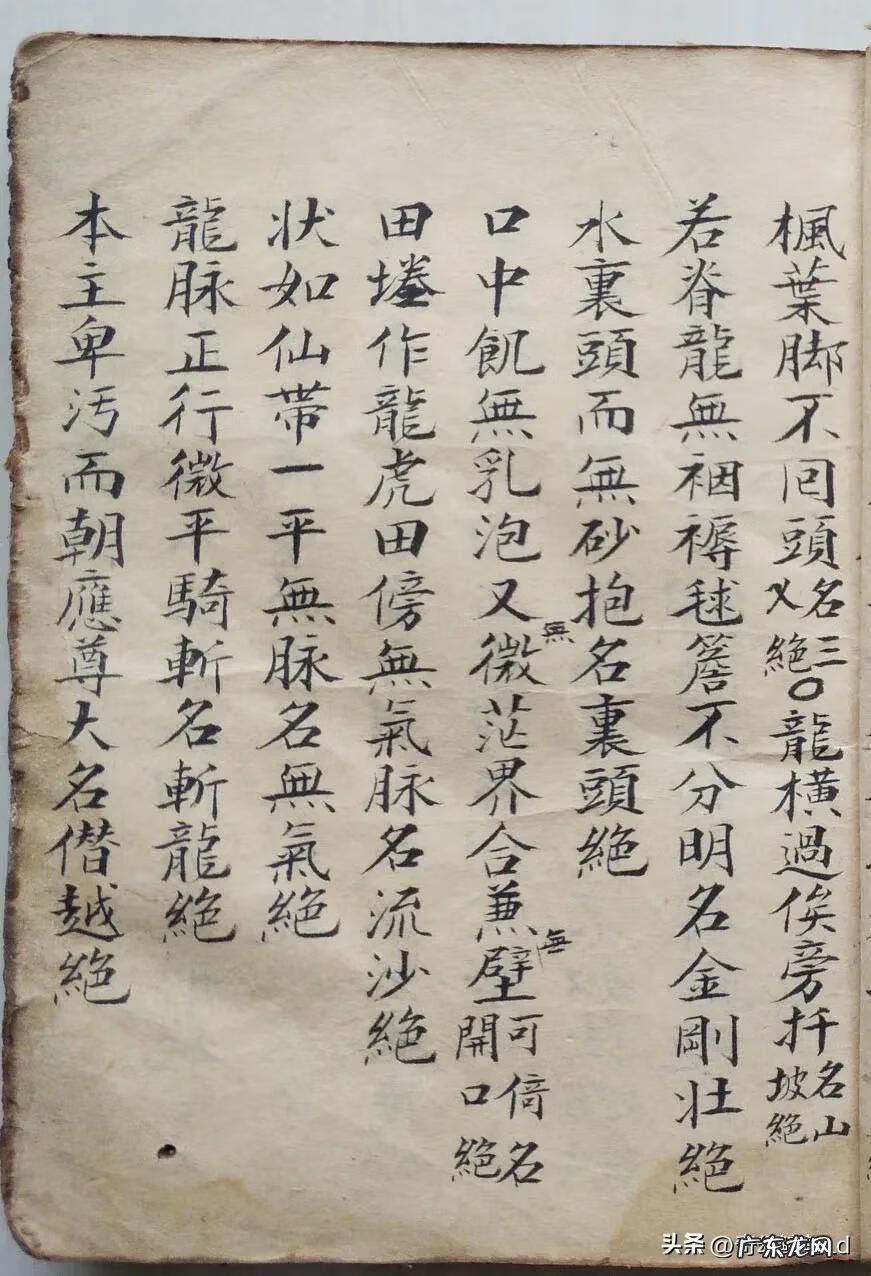 楓葉脚不回頭名三乂絕〇龍橫過俟旁扦名山坡絕
若脊龍無裀褥毬簷不分明名金剛壮絕
水裏頭而無砂抱名裏頭絕
口中飢無乳泡又無微茫界合兼無壁可倚名開口絕
田塍作龍虎田傍無氣脉名流沙絕
状如仙带一平無脉名無氣絕
龍脉正行微平騎斬名斬龍絕
本主卑污而朝應尊大名僭越絕
头条 @
广东龙网
d